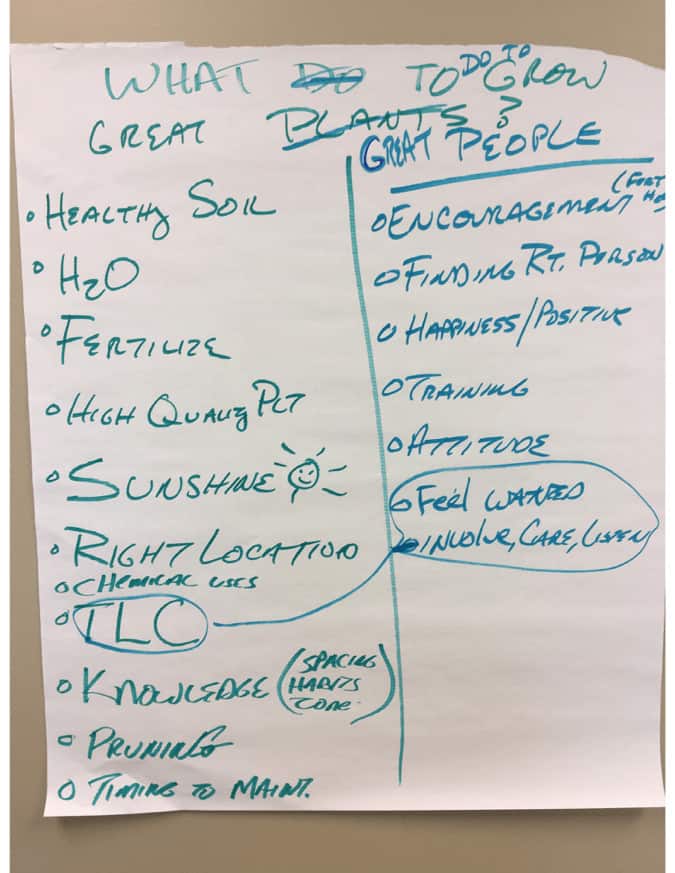 WHAT DO TO DO TO GROW
GREAT PLANTS?
HEALTHY SOIL
H2O
FERTILIZE
HIGH QUALITY PLT
SUNSHINE
RIGHT LOCATION
CHEMICAL USES
TLC
KNOWLEDGE (SPACING
HABITS
ZONE)
PRUNING
TIMING TO MAINT.
GREAT PEOPLE
ENCOURAGEMENT
FINDING RT. PERSON
HAPPINESS/POSITIVE
TRAINING
ATTITUDE
Feel WANTED
INVOLVE, CARE, LISTEN